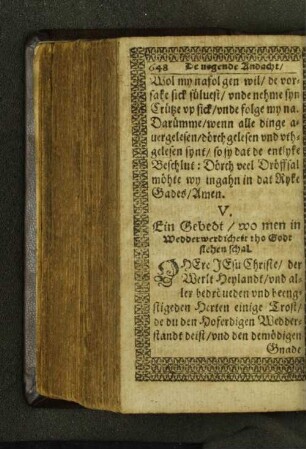 648 De vogende Andacht/
Wol my nafolgen wil/ de vor-
sake sick süluest/ vnde nehme syn
Crütze vp sick/vnde folge my na.
Darümme/wenn alle dinge a-
uergelesen/dörchgelesen vnd vth-
gelesen synt/ so sy dat de entlyke
Beschlut: Dörch veel Dröffsal
möhte wy ingahn in dat Ryke
Gades/Amen.
V.
Ein Gebedt/ wo men in
Wedderwerdicheit tho Godt
flehen schal.
O HEre JEsu Christe/ der
Werlt Heylandt/vnd al-
ler bedröueden vnd beeng-
stigeden Herten einige Trost/
de du den Hoferdigen Wedder-
standt deist/vnd den demödigen
Gnade